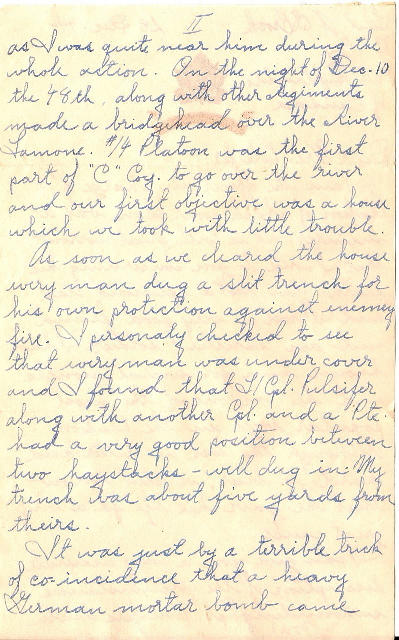 II
as I was quite near him during the
whole action. On the night of Dec. 10
the 48th, along with other Regiments
made a bridgehead over the River
Lamone. #14 Platoon was the first
part of "C" Coy. to go over the river
and our first objective was a house
which we took with little trouble.
As soon as we cleared the house
every man dug a slit trench for
his own protection against enemey
fire. I personaly checked to see
that every man was under cover
and I found that L/Cpl. Pulsifer
along with another Cpl. and a Pte.
had a very good position between
two haystacks - well dug in. My
trench was about five yards from
theirs.
It was just by a terrible trick
of co-incidence that a heavy
German mortar bomb came